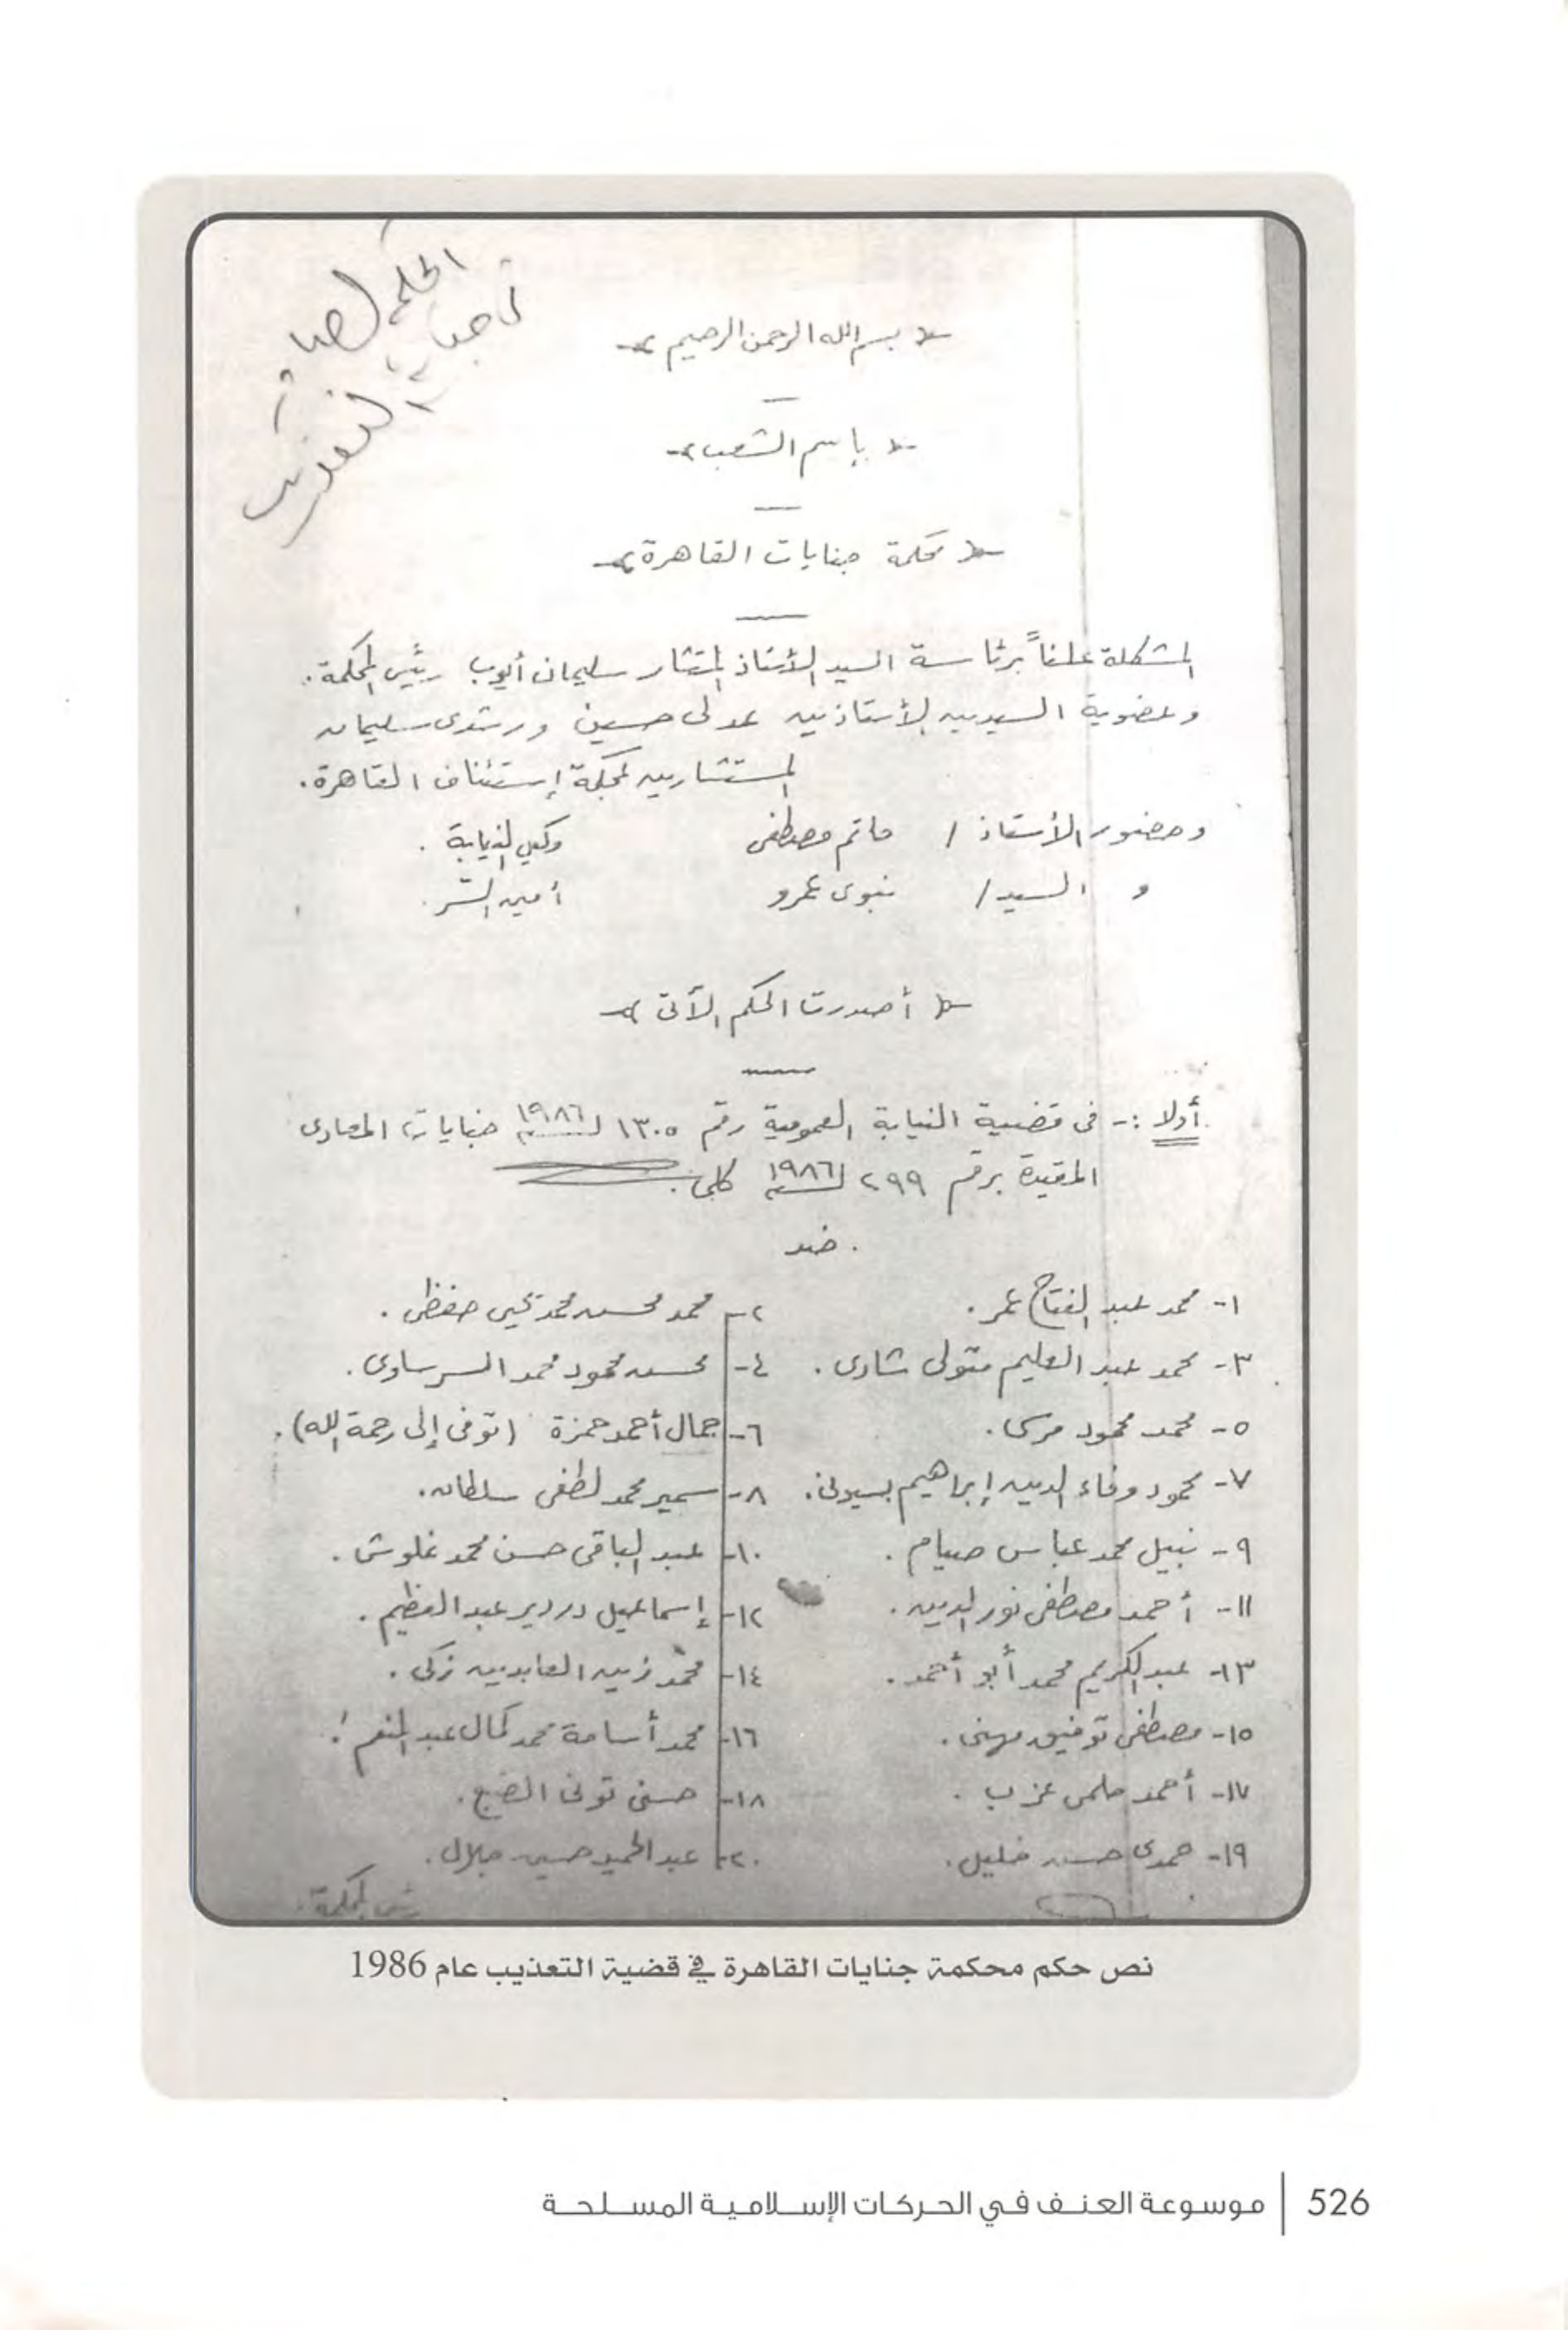 الحكم الصادر
في جنايات
التعذيب
بسم الله الرحمن الرحيم
بإسم الشعب
محكمة جنايات القاهرة
المشكلة علناً برئاسة السيد الأستاذ المستشار سليمان أيوب رئيس المحكمة.
وعضوية السيدين الأستاذين عدلى حسين ورشدى سليمان
المستشارين بمحكمة إستئناف القاهرة.
وحضور الأستاذ / حاتم مصطفى وكيل النيابة.
و السيد / نبوى عمرو أمين السر.
أصدرت الحكم الآتى
أولا :- فى قضية النيابة العمومية رقم ١٣٠٥ لسنة ١٩٨٦ جنايات المعادى
المقيدة برقم ٢٩٩ لسنة ١٩٨٦ كلى.
ضد
١- محمد عبد الفتاح عمر. ٢- محمد محسن محمد يحيى حفظى.
٣- محمد عبد العليم متولى شادى. ٤- محسن محمود محمد السرساوى.
٥- محمد محمود مرسى. ٦- جمال أحمد حمزة (توفى إلى رحمة الله).
٧- محمود وفاء الدين إبراهيم بسيونى. ٨- سمير محمد لطفى سلطان.
٩- نبيل محمد عباس صيام. ١٠- عبد الباقى حسن محمد غلوش.
١١- أحمد مصطفى نور الدين. ١٢- إسماعيل دردير عبد العظيم.
١٣- عبد الكريم محمد أبو أحمد. ١٤- محمد زين العابدين زكى.
١٥- مصطفى توفيق مهنى. ١٦- محمد أسامة محمد كمال عبد المنعم.
١٧- أحمد حلمى عزب. ١٨- حسنى تونى الضبع.
١٩- حمدى حسن خليل. ٢٠- عبد الحميد حسين جلال.
رئيس المحكمة.
نص حكم محكمة جنايات القاهرة في قضية التعذيب عام 1986
526 موسوعة العنف في الحركات الإسلامية المسلحة